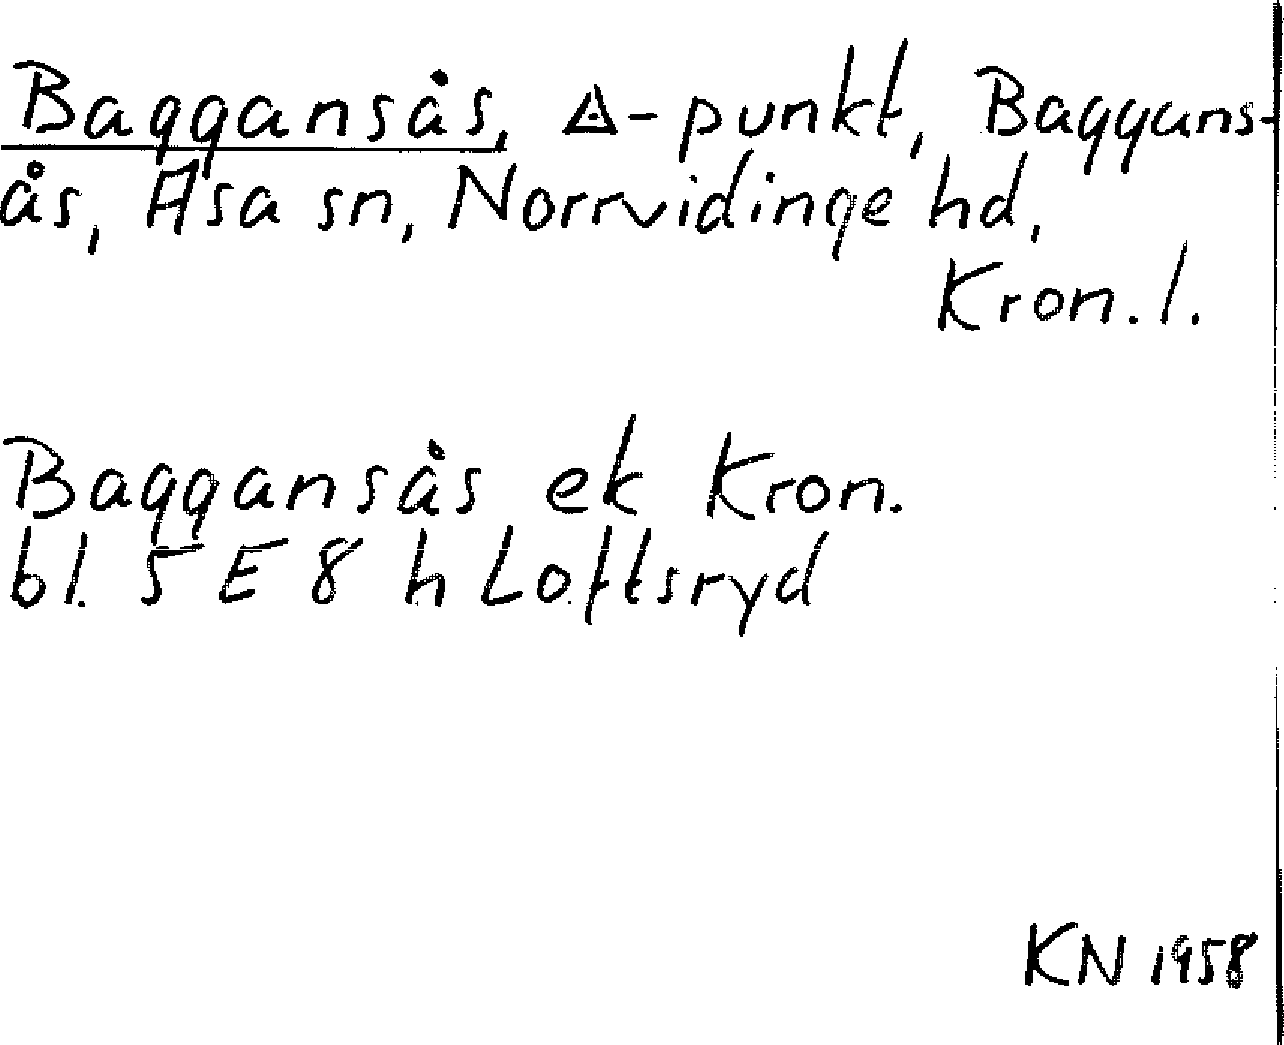 Baggansås, △-punkt, Baggans-
ås, Asa sn, Norrvidinge hd,
Kron. l.
Baggansås ek Kron.
bl. 5 E 8 h Loftsryd
KN 1958